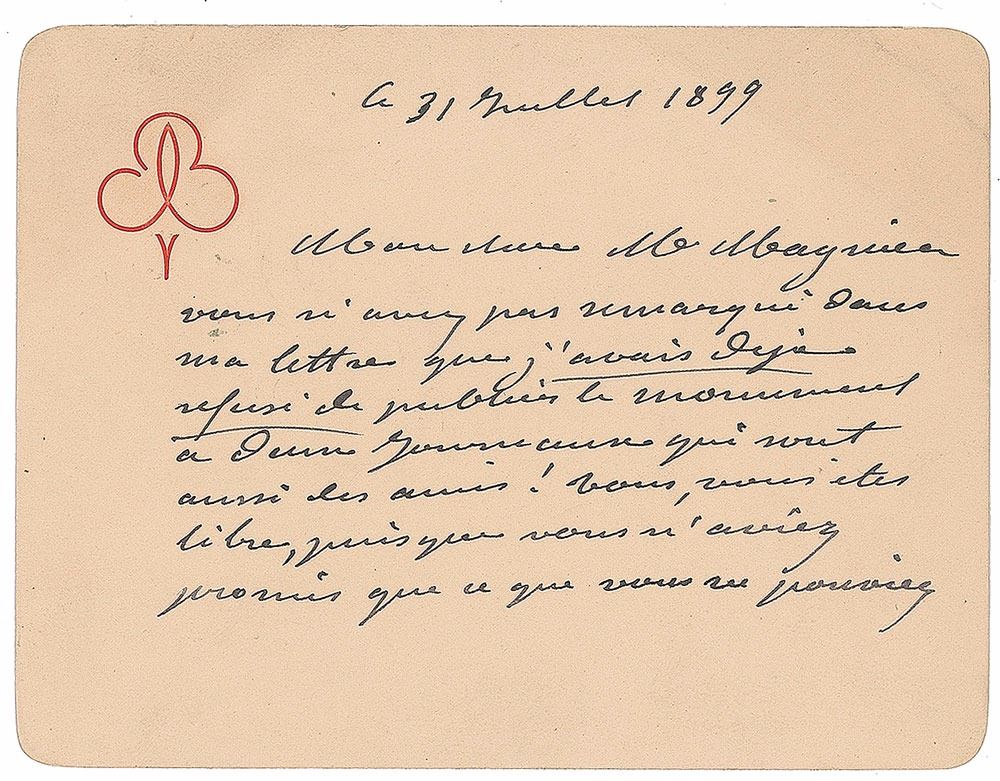 le 31 Juillet 1899
Mon cher Mr Magnier
vous n'avez pas remarqué dans
ma lettre que j'avais deja
refusé de publier le monument
a deux Journaux qui sont
aussi des amis! Vous, vous etes
libre, puisque vous n'aviez
promis que ce que vous ne pouviez